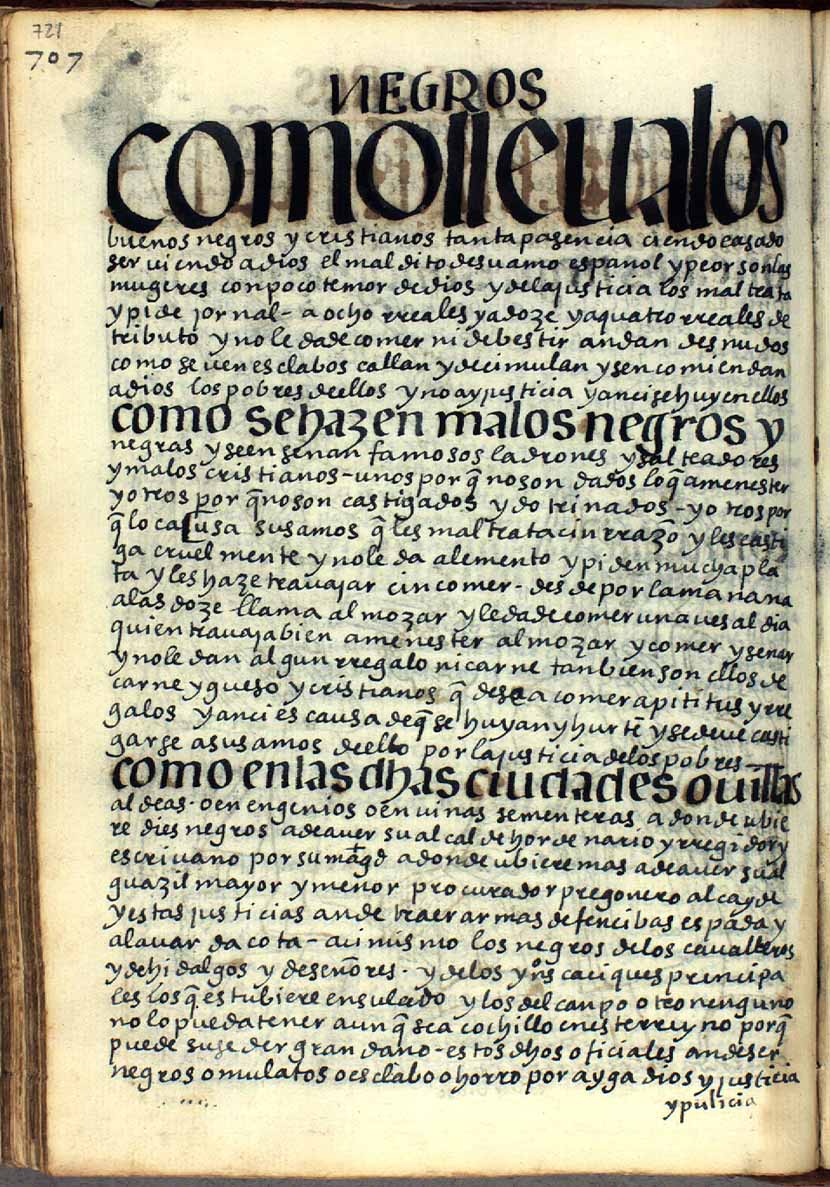 721
707
NEGROS
como lleua los
buenos negros y cristianos tanta pasencia ciendo casado
ser uiendo a dios el maldito de su amo español y peor son las
mugeres con poco temor de dios y de la justicia los mal trata
y pide jornal - a ocho rreales y a doze y a quatro rreales de
tributo y no le da de comer ni de bestir andan desnudos
como se uen esclabos callan y decimulan y se encomiendan
a dios los pobres de ellos y no ay justicia y anci se huyen ellos
como se hazen malos negros y
negras y se ensenan famosos ladrones y salteadores
y malos cristianos - unos por q̃ no son dados lo q̃ a menester
y otros por q̃ no son castigados y dotrinados - y otros por
q̃ lo causa sus amos q̃ les mal trata cin rrazõ y les casti
ga cruelmente y no le da alemento y piden mucha pla
ta y les haze trauajar cin comer - desde por la manana
a las doze llama almozar y le da de comer una ues al dia
quien trauaja bien a menester almozar y comer y senar
y no le dan algun rregalo ni carne tanbien son ellos de
carne y gueso y cristianos q̃ desea comer apititus y rre
galos y anci es causa de q̃ se huyan y hurtẽ y se deue casti
garse a sus amos de ello por la justicia de los pobres -
como en las dhas ciudades o uillas
aldeas - o en engenios o en uinas sementeras a donde ubie
re dies negros a de auer su alcalde hordenario y rregidor y
escriuano por su mãgd a donde ubiere mas a de auer su al
guazil mayor y menor procurador pregonero alcayde
y estas justicias an de traer armas defencibas espada y
alauarda cota - acimismo los negros de los caualleros
y de hidalgos y de señores - y de los yn̄s caciques principa
les los q̃ estubiere en su lado y los del canpo otro nenguno
no lo pueda tener aun q̃ sea cochillo en este rreyno porq̃
puede suseder gran dano - estos dhos oficiales an de ser
negros o mulatos o esclabo o horro por ayga dios y justicia
y pulicia